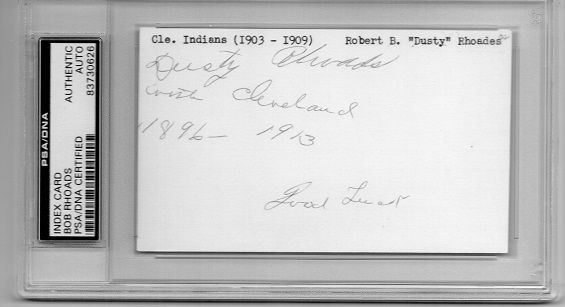 PSA/DNA
INDEX CARD
BOB RHOADS
PSA/DNA CERTIFIED
AUTHENTIC
AUTO
83730626
Cle. Indians (1903 - 1909) Robert B. "Dusty" Rhoades
Dusty Rhoads
with Cleveland
1896- 1913
Good Luck